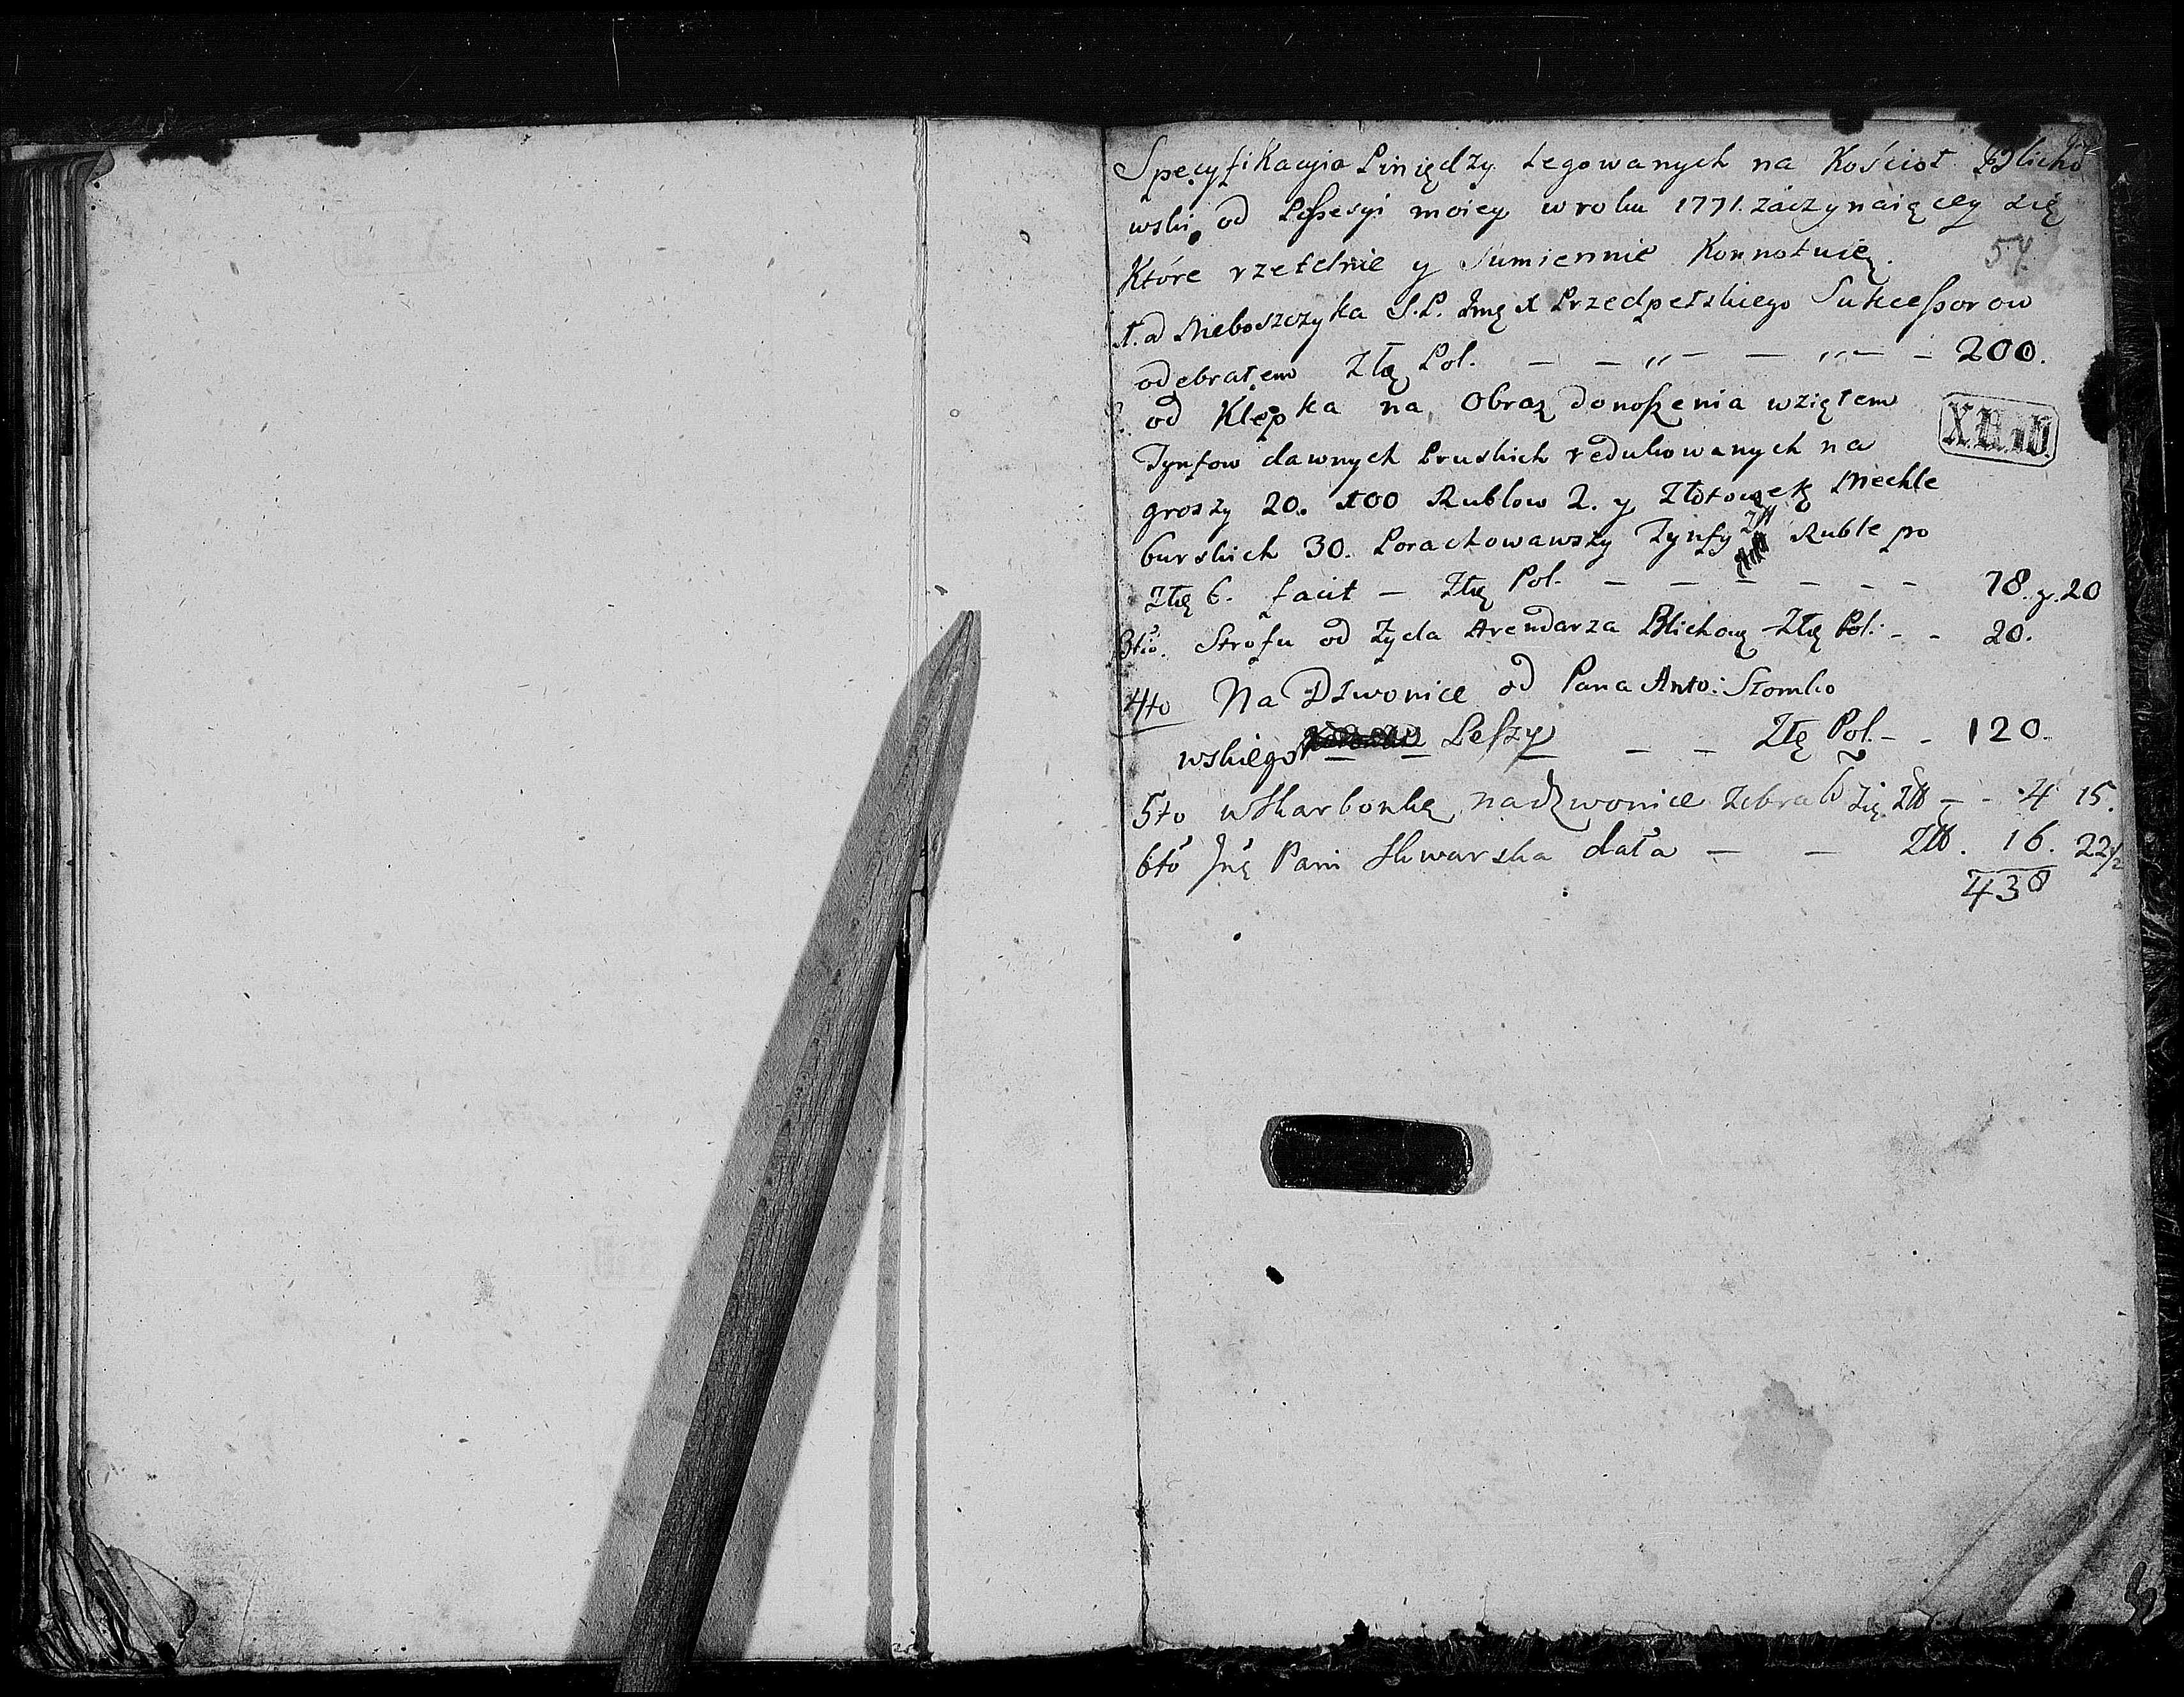 Specyfikacyia Piniędzy Legowanych na Kościoł Blicho
wski od Poßesyi moiey w roku 1771. zaczynaiącey się
Które rzetelnie y Sumiennie Konnotuię.
54.
1. od Nieboszczyka S.P. Jmę X Przedpełskiego Sukceßorow
odebrałem Złłę Pol. — — „ — — „ — — 200.
2. od Klepka na Obraz donoßenia wziąłem
XBiU.
Tynfow dawnych Pruskich redukowanych na
groszy 20. 100 Rublow 2. y Złotowek Mechle
burskich 30. Porachowawszy Tynfy Ruble po
Złłę 6. facit — Złłę Pol. — — — — — — 78. g. 20
3tio. Strofu od Zyda Arendarza Blichow Złłę Pol: - - 20.
4to Na Dzwonice od Pana Anto: Słomko
wskiego Leßzy — — Złłę Pol. - - 120.
5to w Skarbonkę na dzwonice zebrało się Złł - - 4 15.
6to Jmę Pani Skwarska dała — — Złł. 16. 22½
438